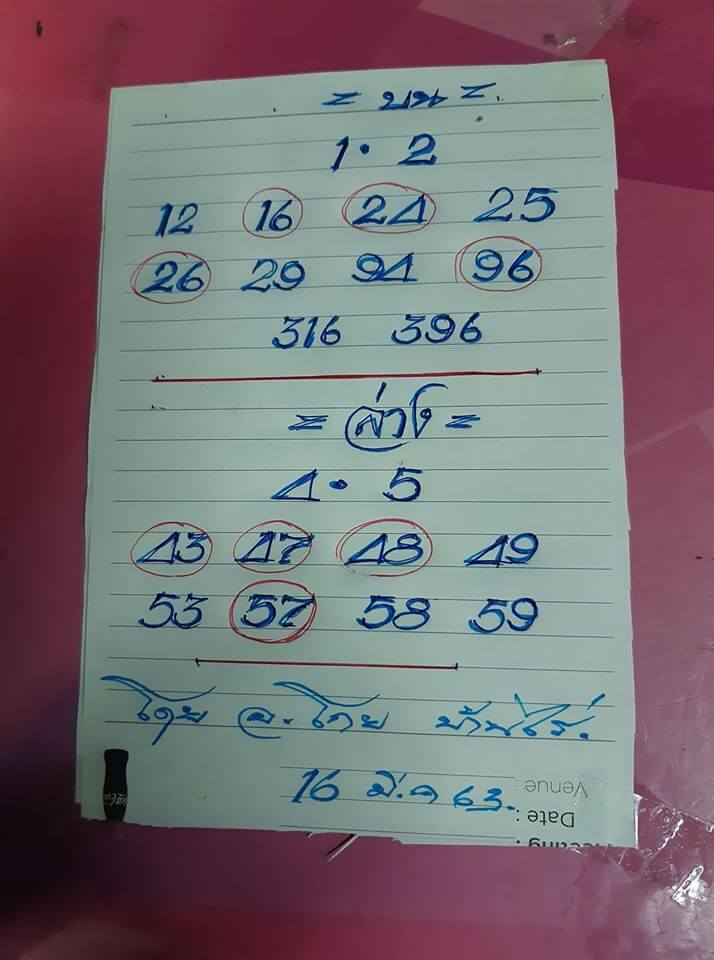 = บน =.
1 . 2
12 16 24 25
26 29 94 96
316 396
= ล่าง =
4 . 5
43 47 48 49
53 57 58 59
โดย อ. โกย บ้านไร่.
16 มี.ค 63.
Venue :
Date :